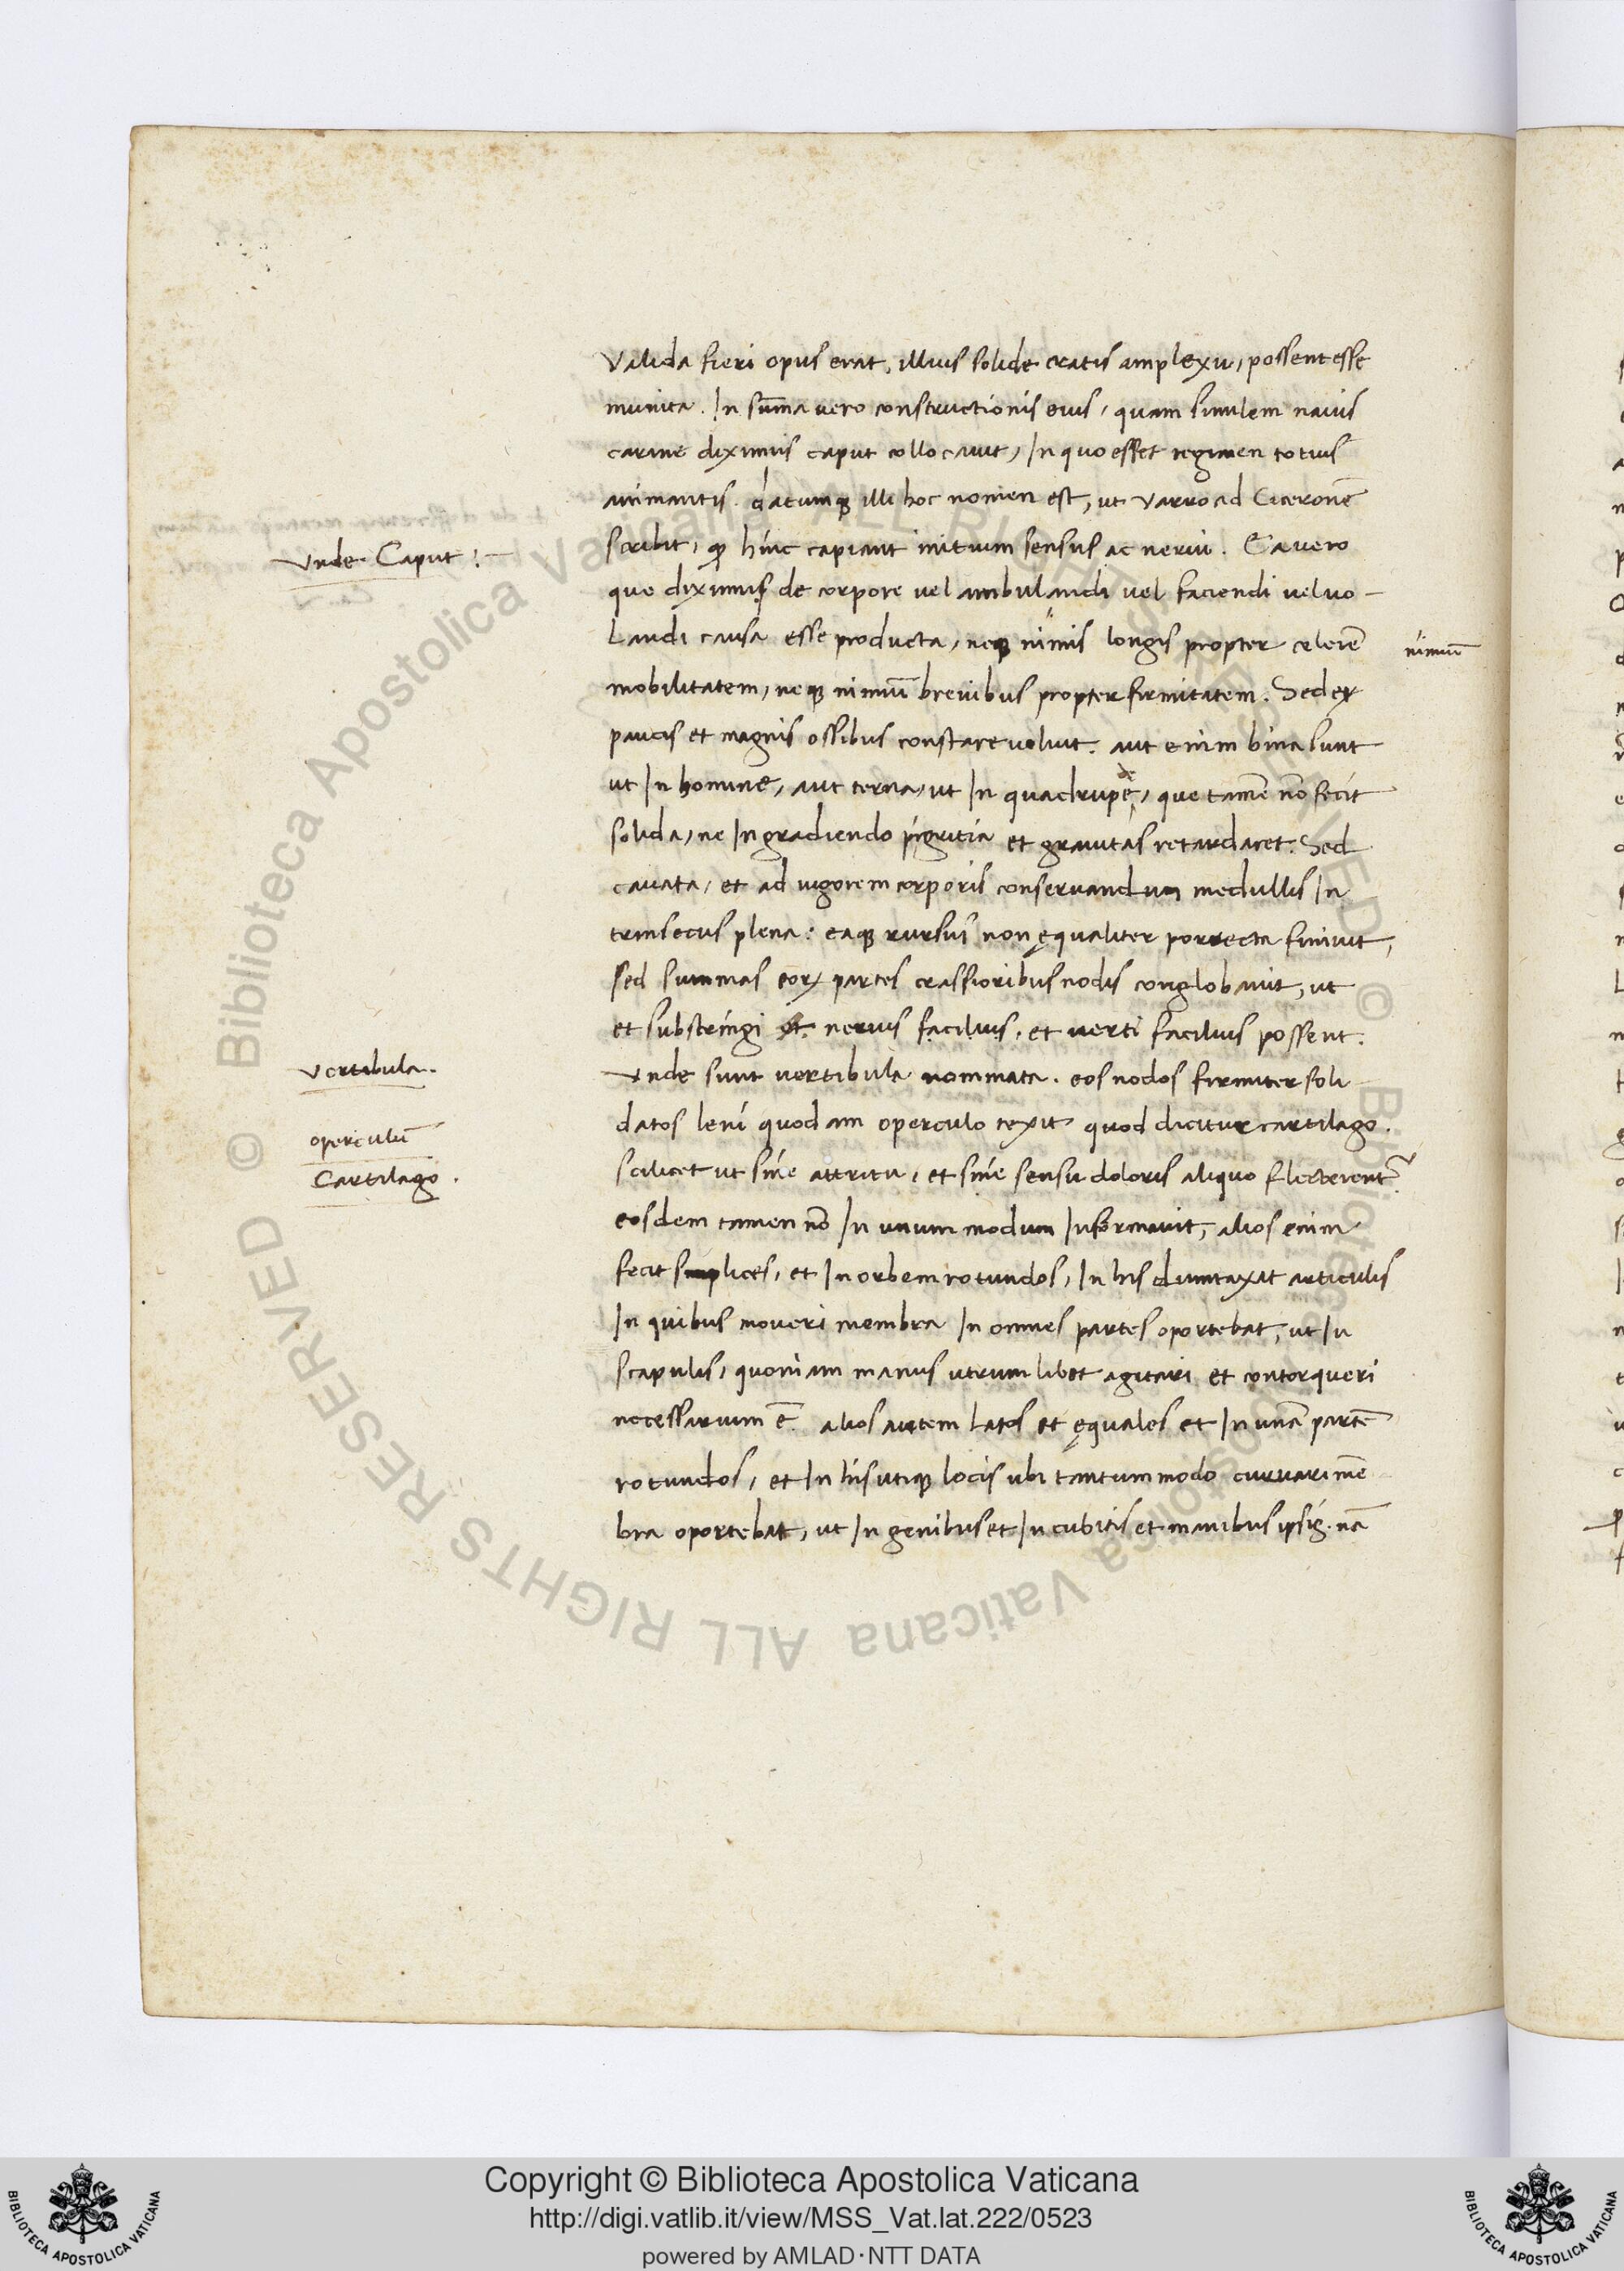 Valida fieri opus erat, illius solide cratis amplexu, possent esse
munita. In sūma vero constructionis eius, quam similem navis
carine diximus caput collocavit, In quo esset regimen totius
animantis. datumqꝫ illi hoc nomen est, ut varro ad Ciceronē
Vnde Caput :
scribit, ꝙ hinc capiant initium sensus ac nervi. Ea vero
que diximus de corpore vel ambulandi vel faciendi vel vo-
landi causa esse producta, neqꝫ nimis longis propter celerē
nimiū
mobilitatem, neqꝫ nimiū brevibus propter firmitatem. Sed ex
paucis et magnis ossibus constare voluit. aut enim bina sunt
ut In homine, aut terna, ut In quadrupede, que tamē nō fecit
solida, ne In gradiendo pigritia et gravitas retardaret. Sed
cavata, et ad vigorem corporis conservandum medullis In
trinsecus plena: eaqꝫ rursus non ęqualiter porrecta finivit,
sed summas eoꝝ partes crassioribus nodis conglobavit, ut
et substringi nervis facilius, et verti facilius possent.
Vertibula.
Vnde sunt vertibula nominata. eos nodos firmiter soli
operculū
datos leni quodam operculo texit quod dicitur cartilago.
Cartilago.
scilicet ut sine attritu, et sine sensu doloris aliquo flecterent᷑.
eosdem tamen nō In unum modum Informavit, alios enim
fecit simplices, et In orbem rotundos, In his dumtaxat articulis
In quibus moveri membra In omnes partes oportebat, ut In
scapulis, quoniam manus utrum libet agitari et contorqueri
necessarium ē. alios autem latos et ęquales et In unā partē
rotundos, et In his utiqꝫ locis ubi tantummodo curvari mē
bra oportebat, ut In genibus et In cubitis et manibus ipsis. nā
Copyright © Biblioteca Apostolica Vaticana
http://digi.vatlib.it/view/MSS_Vat.lat.222/0523
powered by AMLAD·NTT DATA
BIBLIOTECA APOSTOLICA VATICANA
BIBLIOTECA APOSTOLICA VATICANA
© Biblioteca Apostolica Vaticana ALL RIGHTS RESERVED
© Biblioteca Apostolica Vaticana ALL RIGHTS RESERVED